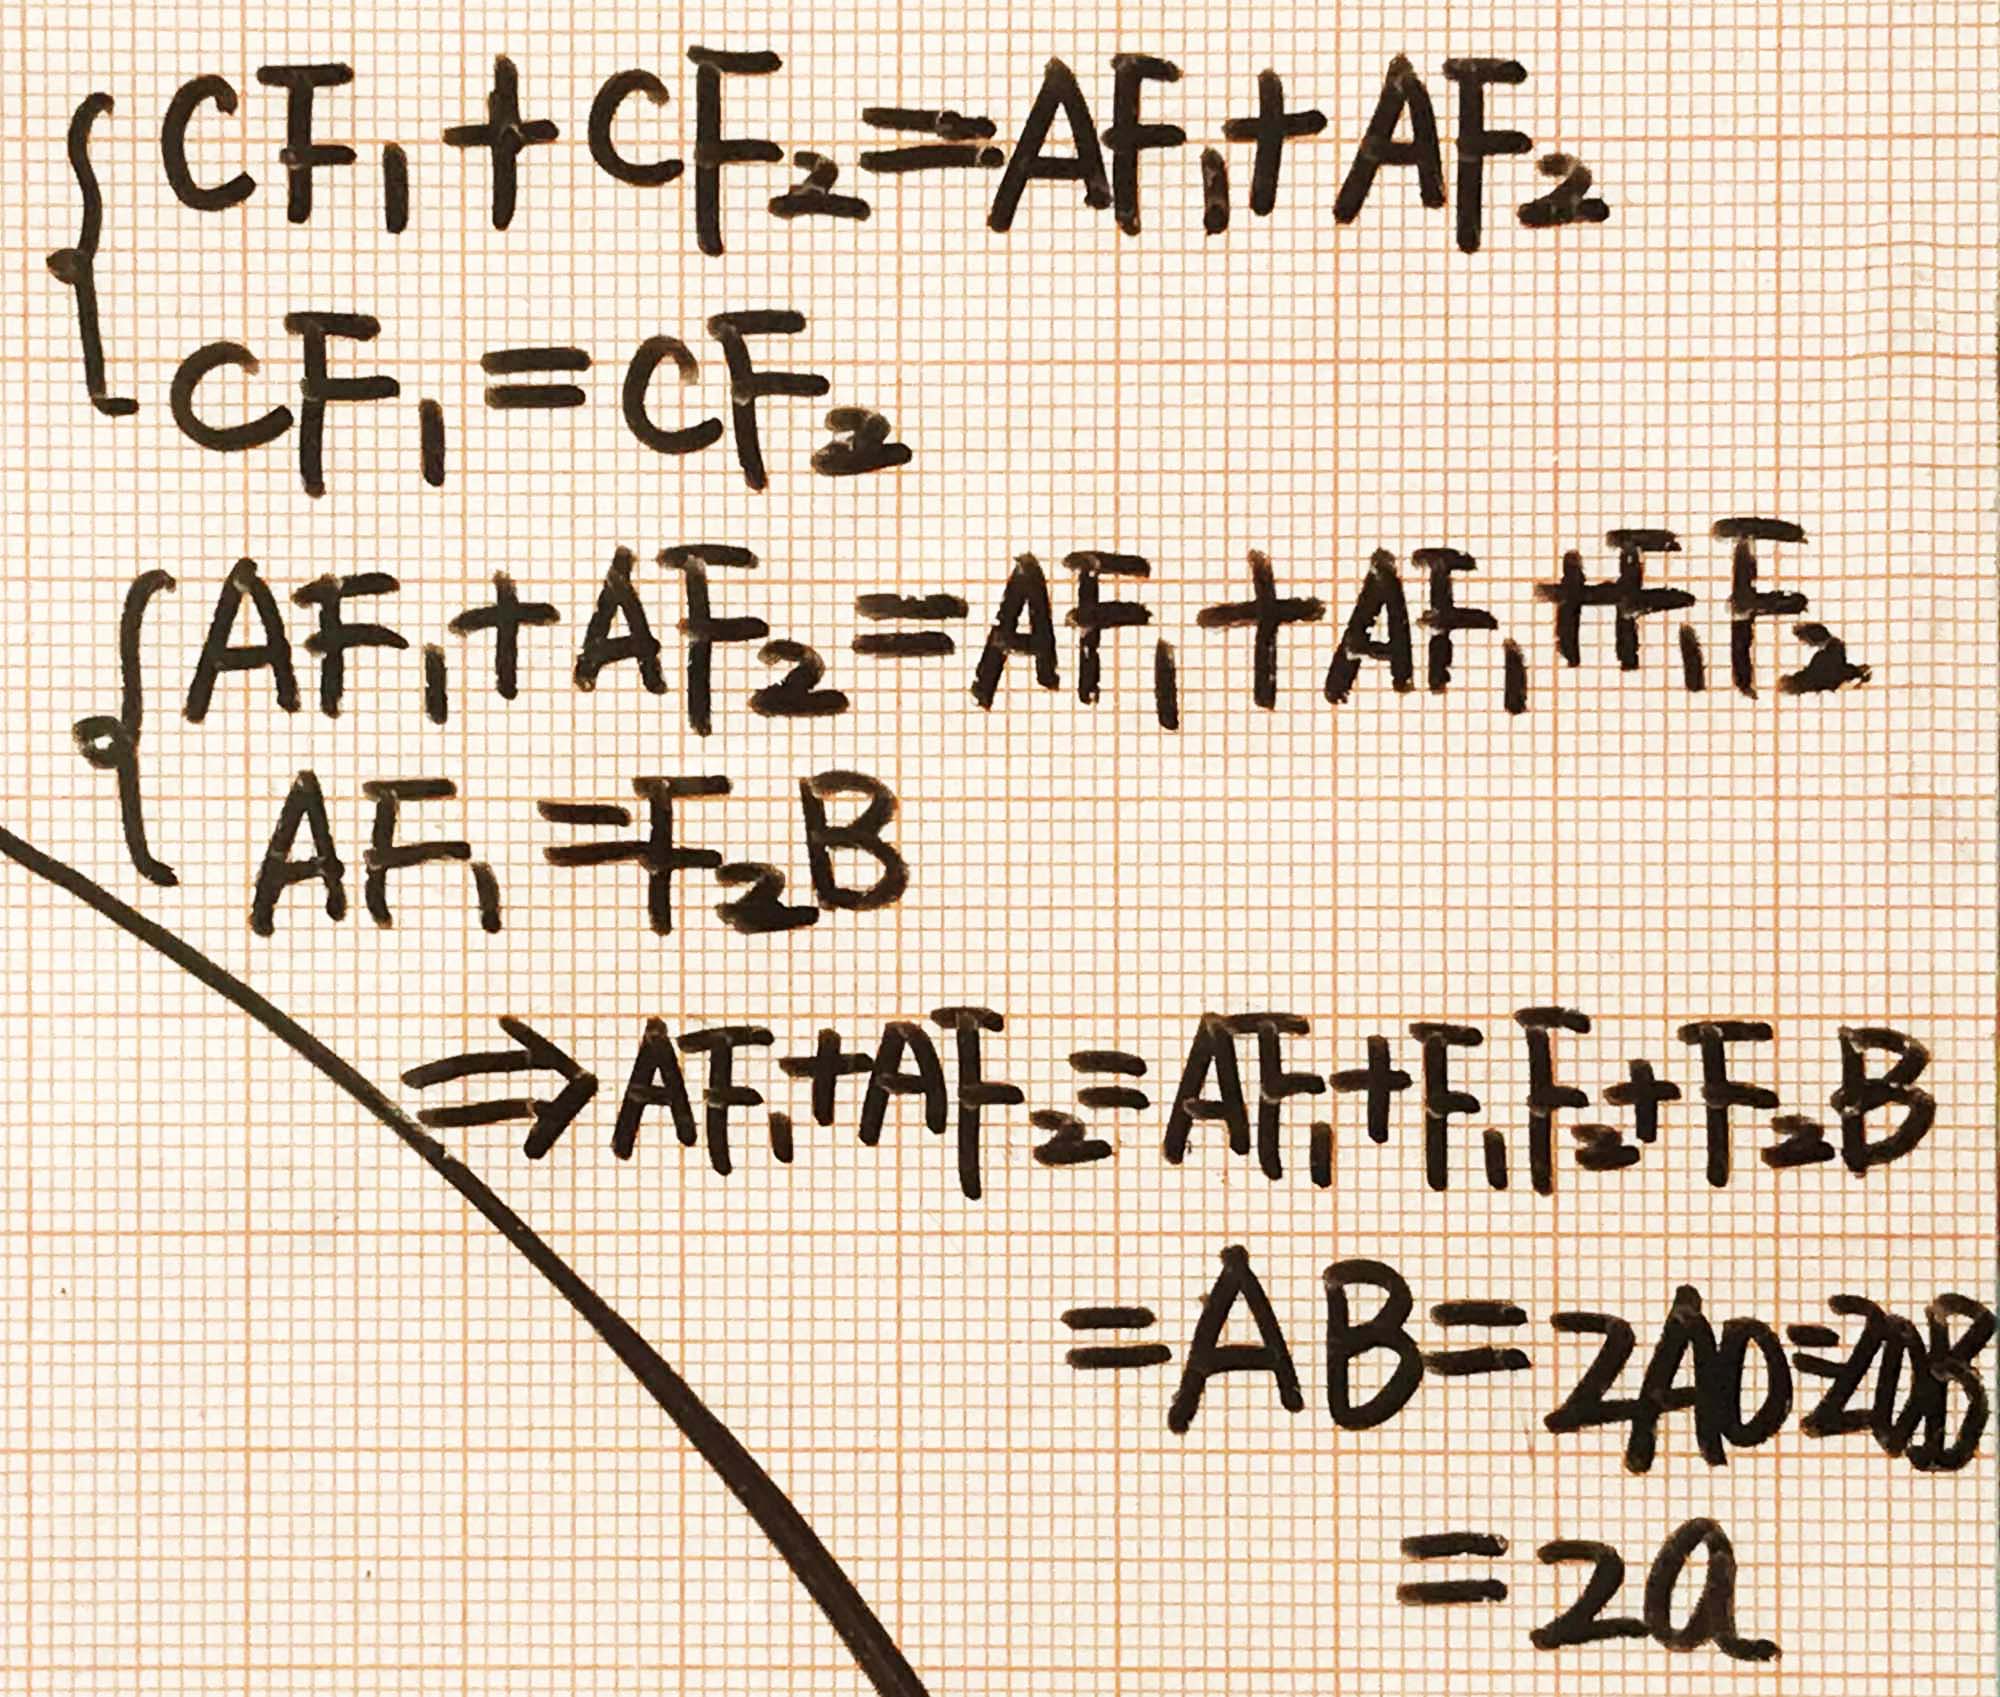 CF₁+CF₂=AF₁+AF₂
CF₁=CF₂
AF₁+AF₂=AF₁+AF₁+F₁F₂
AF₁=F₂B
⇒AF₁+AF₂=AF₁+F₁F₂+F₂B
=AB=2AO=2OB
=2a